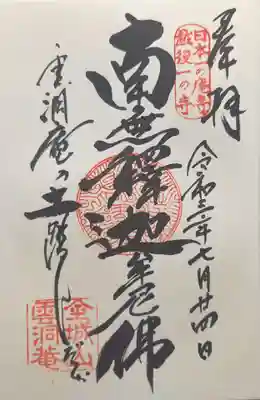 奉拝
日本一の庵寺
越後一の寺
令和三年七月廿四日
南無釋迦牟尼佛
雲洞庵の土踏
金城山
雲洞菴